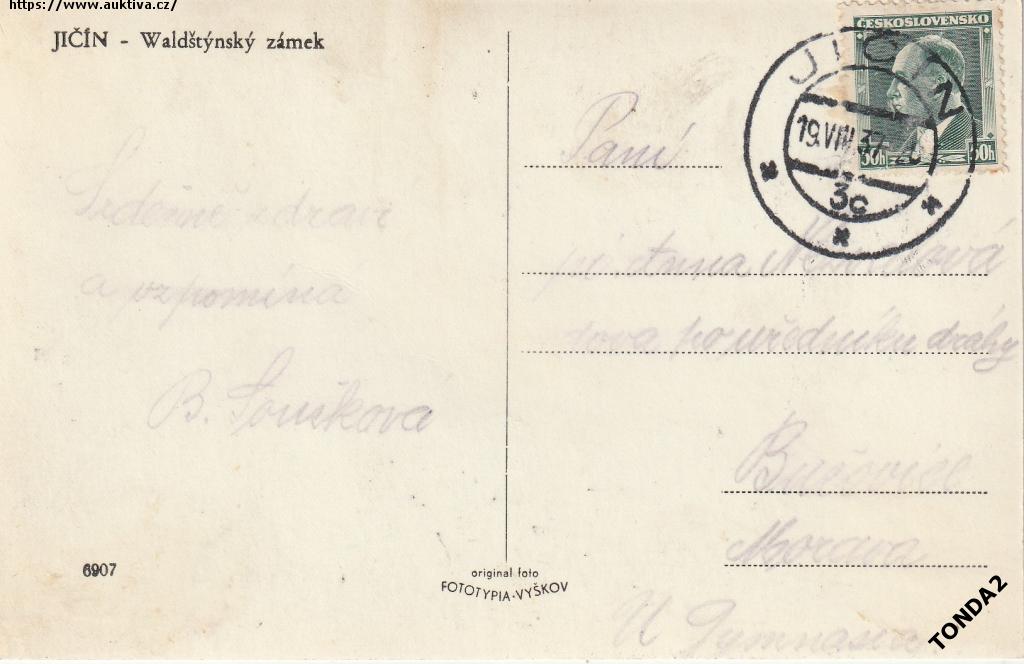 https://www.auktiva.cz/
JIČÍN - Waldštýnský zámek
Srdečně zdraví
a vzpomíná
B. Součková
6907
original foto
FOTOTYPIA-VYŠKOV
ČESKOSLOVENSKO
50h 50h
JIČÍN
19.VIII.37
3c
Paní
Anna
vdova po úředníku dráhy
Bučovice
Morava
U Gymnasia
TONDA2